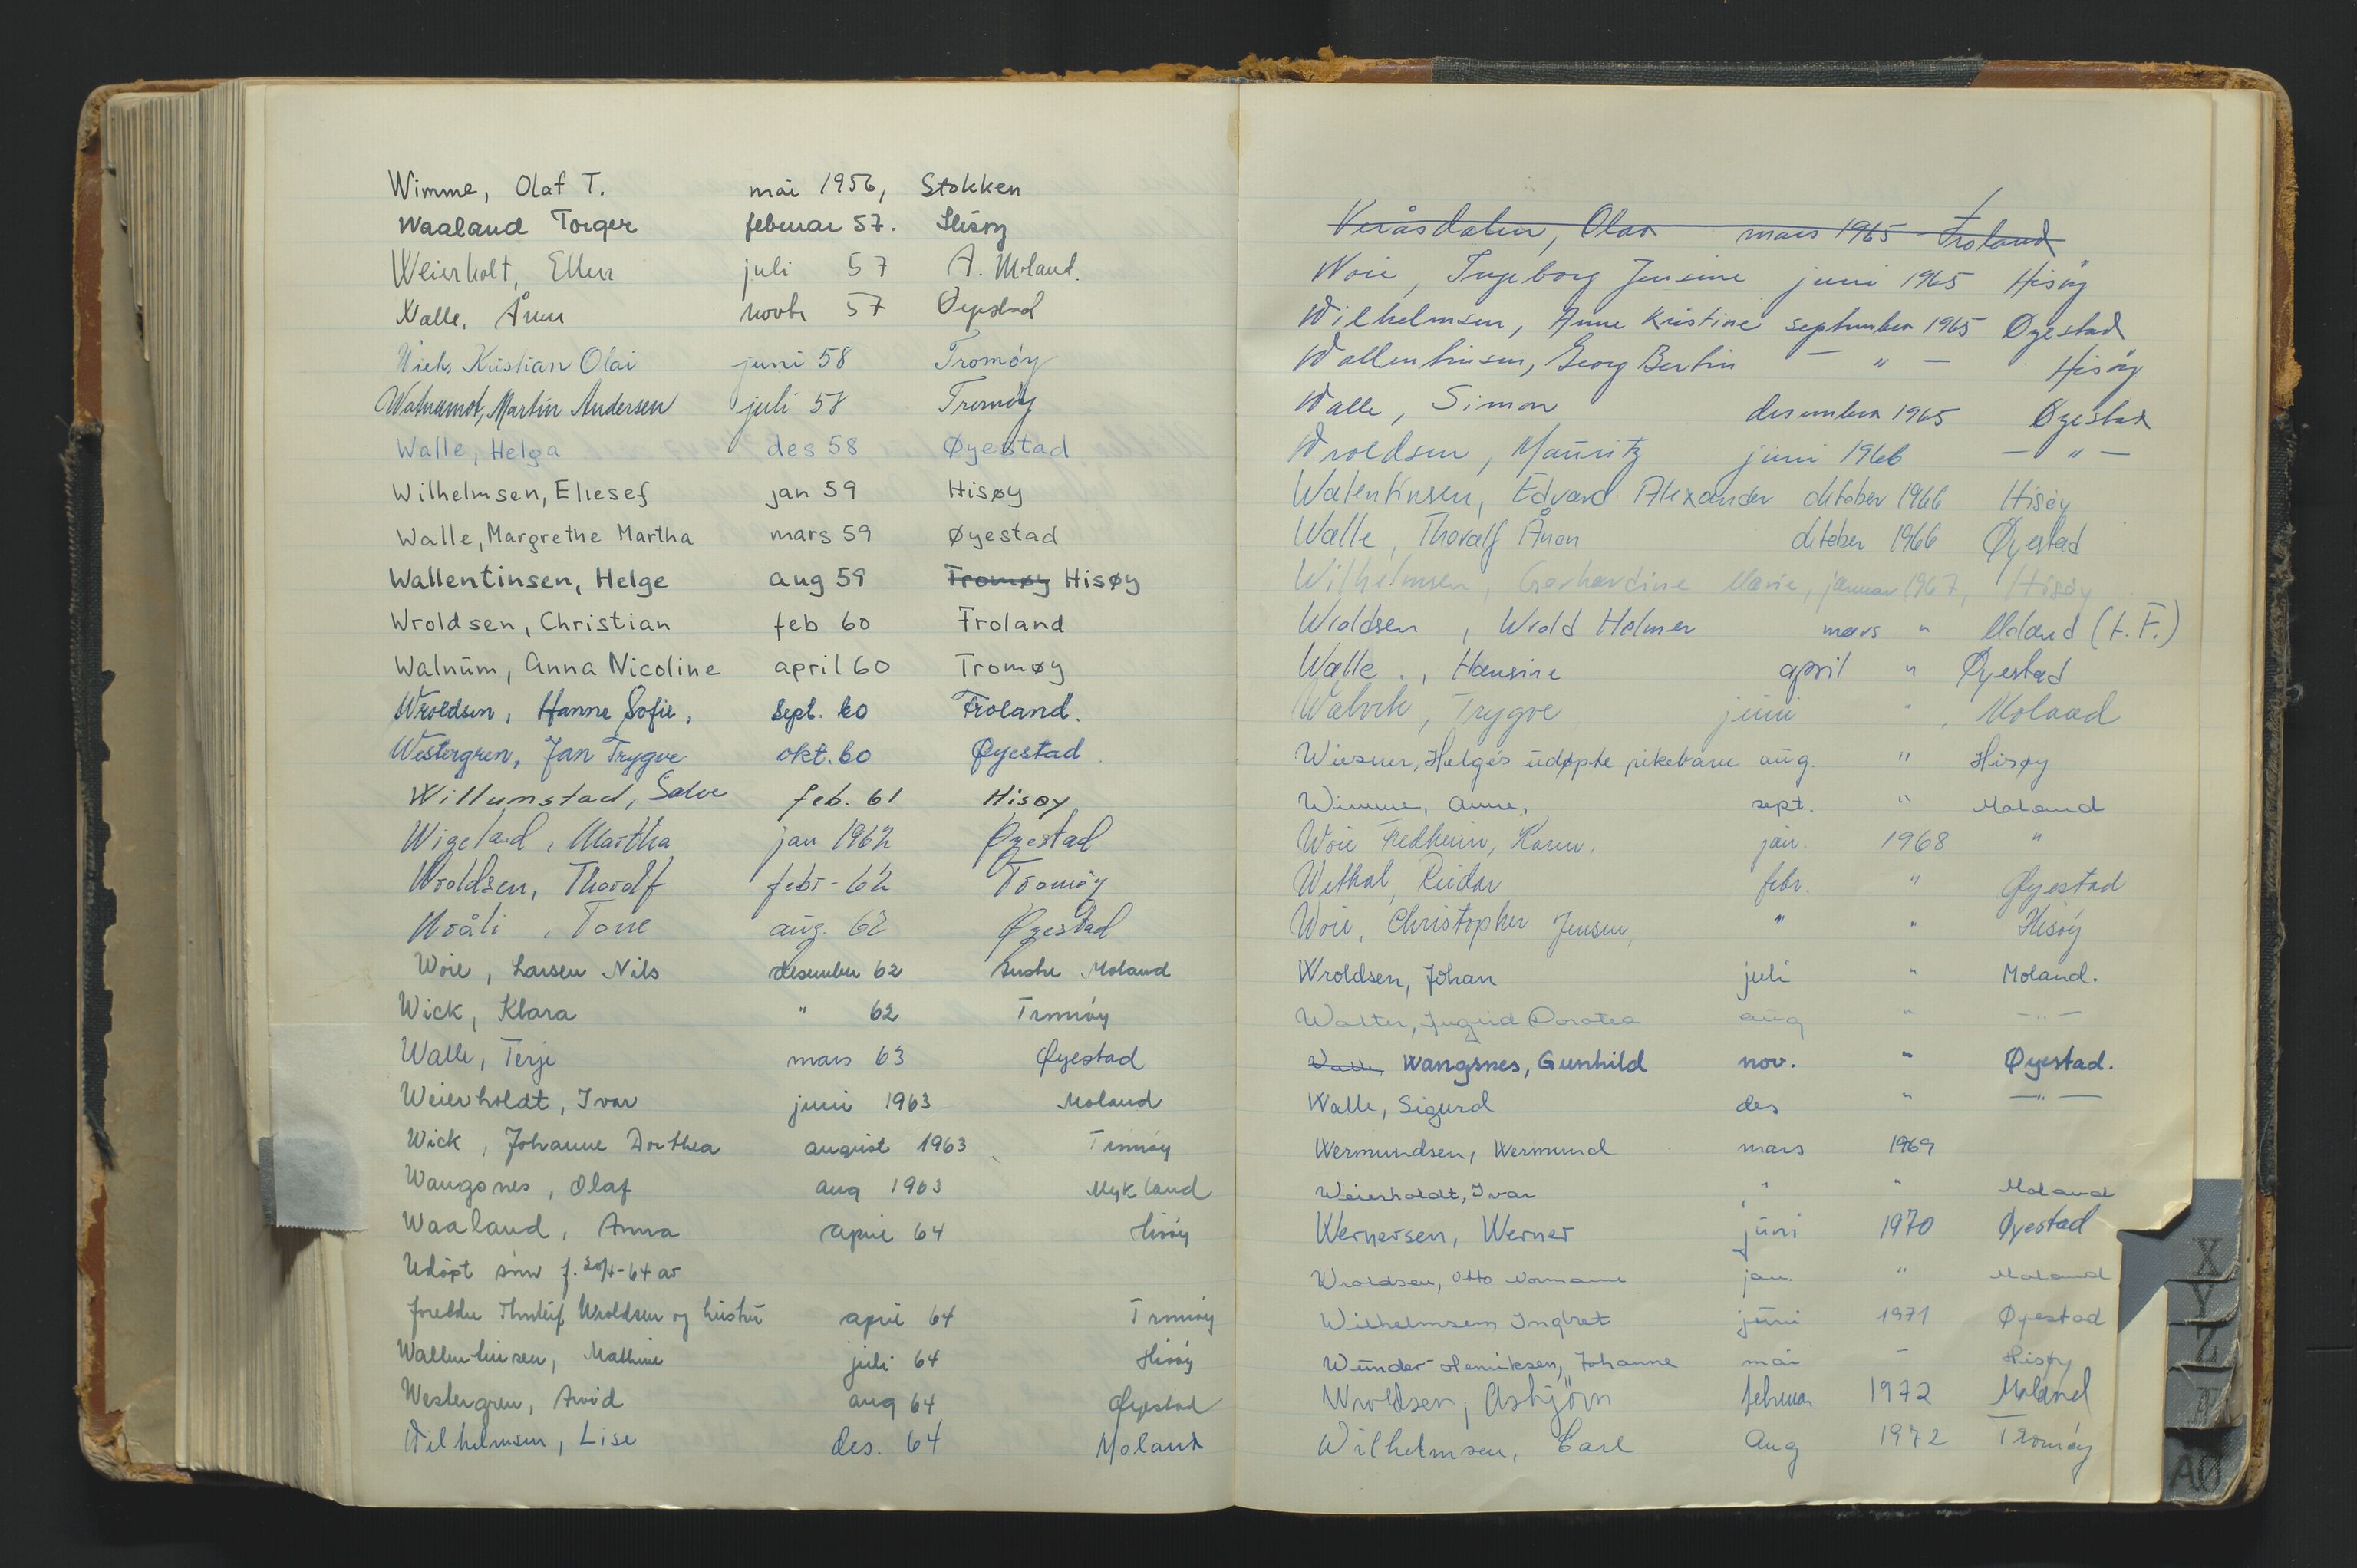 Wimme, Olaf T. mai 1956, Stokken
Waaland Torger februar 57. Hisøy
Weierholt, Ellen juli 57 A. Moland.
Walle, Ånon novbr 57 Øyestad
Wick, Kristian Olai juni 58 Tromöy
Martin Andersen juli 58 Tromöy
Walle, Helga des 58 Øyestad
Wilhelmsen, Eliesef jan 59 Hisøy
Walle, Margrethe Martha mars 59 Øyestad
Wallentinsen, Helge aug 59 Tromøy Hisøy
Wroldsen, Christian feb 60 Froland
Walnum, Anna Nicoline april 60 Tromøy
Wroldsen, Hanne Sofie, sept. 60 Froland.
Westergren, Jan Trygve okt. 60 Øyestad
Willumstad, Salve feb. 61 Hisøy
Wigeland, Martha jan 1962 Øyestad
Wroldsen, Thorolf febr - 62 Tromøy
Wråli, Tone aug. 62 Øyestad
Woie, Larsen Nils desember 62 Austre Moland
Wick, Klara " 62 Tromöy
Walle, Terje mars 63 Øyestad
Weierholdt, Ivar juni 1963 Moland
Wick, Johanne Dorthea august 1963 Tromöy
Wangsnes, Olaf aug 1963 Mykland
Waaland, Anna april 64 Hisöy
Udöpt sönn f. 20/4-64 av
foreldre Wroldsen og hustru april 64 Tromöy
Wallentinsen, Mathine juli 64 Hisöy
Westergren, Arvid aug 64 Øyestad
Wilhelmsen, Lise des. 64 Moland
Veråsdalen, Olav mars 1965 Froland
Woie, Ingeborg Jensine juni 1965 Hisöy
Wilhelmsen, Anne Kristine september 1965 Øyestad
Wallentinsen, Georg Bertin — " — Hisöy
Walle, Simon desember 1965 Øyestad
Wroldsen, Mauritz juni 1966 — " —
Walentinsen, Edvard Alexander oktober 1966 Hisøy
Walle, Thoralf Ånon oktober 1966 Øyestad
Wilhelmsen, Gerhardine Marie, januar 1967, Hisøy
Wroldsen, Wrold Helmer mars " Moland (t. F.)
Walle, Hansine april " Øyestad
Walvik, Trygve juni " Moland
Wiesner, Helge's udøpte pikebarn aug. " Hisøy
Wimme, Anne, sept. " Moland
Woie Fredheim, Karen, jan. 1968 "
Wethal, Reidar febr. " Øyestad
Woie, Christopher Jensen, " " Hisöy
Wroldsen, Johan juli " Moland.
Walter, Ingrid Dorotea aug " — " —
Walle, Wangsnes, Gunhild nov. " Øyestad.
Walle, Sigurd des " — " —
Wermundsen, Wermund mars 1969
Weierholdt, Ivar " " Moland
Wernersen, Werner juni 1970 Øyestad
Wroldsen, Otto Normann jan. " Moland
Wilhelmsen Ingbret juni 1971 Øyestad
Wunder-Henriksen, Johanne mai – Hisøy
Wroldsen, Asbjörn februar 1972 Moland
Wilhelmsen, Carl Aug 1972 Tromøy
X
Y
Z
Æ
AØ